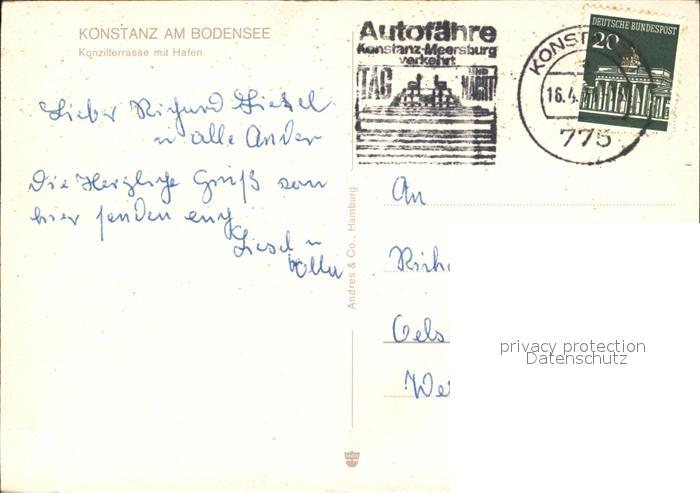 KONSTANZ AM BODENSEE
Konzilterrasse mit Hafen
Lieber Richard Liesel
u alle Ander
Die Herzliche Grüß von
hier senden euch
Liesel u
Autofähre
Konstanz-Meersburg
verkehrt
TAG UND NACHT
KONST
16.4.
775
DEUTSCHE BUNDESPOST
20
An
Rich
Oels
We
Andres & Co., Hamburg
privacy protection
Datenschutz